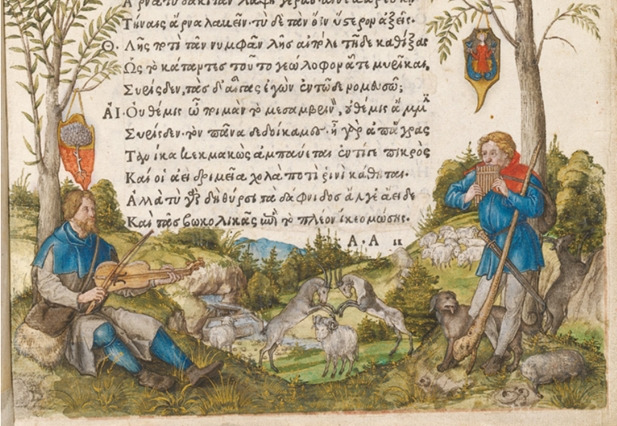 Ἄρνα τὺ σακίταν λαψῇ γέρας· αἰ δέ κ' ἀρέσκῃ
Τήναις ἄρνα λαβεῖν· τὺ δὲ τὰν ὄϊν ὕστερον ἀξεῖς.
Θ. Λῇς ποτὶ τᾶν νυμφᾶν λῇς αἰπόλε τῇδε καθίξας
Ὡς τὸ κάταντες τοῦτο γεώλοφον ᾇτε μυρίκαι,
Συρίσδεν, τὰς δ' αἶγας ἐγὼν ἐν τῷδε νομευσῶ;
ΑΙ. Οὐ θέμις ὦ ποιμὰν τὸ μεσαμβρινὸν, οὐ θέμις ἄμμιν
Συρίσδεν· τὸν πᾶνα δεδοίκαμες· ἦ γὰρ ἀπ' ἄγρας
Τανίκα κεκμακὼς ἀμπαύεται ἐντί γε πικρὸς
Καί οἱ ἀεὶ δριμεῖα χολὰ ποτὶ ῥινὶ κάθηται.
Ἀλλὰ τὺ γὰρ δὴ θύρσι τὰ δάφνιδος ἄλγε' ἄειδε
Καὶ τᾶς βωκολικᾶς ἐπὶ τὸ πλέον ἵκεο μώσης.
Α.Α ii